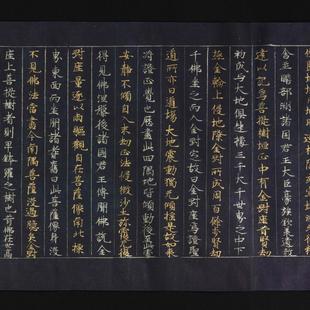 舍並贍部洲諸国君王大臣豪族欽承遺教
建以記焉菩提樹垣正中有金剛座昔賢劫
初成与大地俱起據三千大千世界之中下
極金輪上侵地際金剛所成周百餘步賢劫
千佛坐之而入金剛定故曰金剛座焉證聖
道所亦曰道場大地震動獨无傾摇是故如來
將證正覺也歷此四隅地皆傾動後至此處
安静不傾自入末劫正法侵微沙土弥覆无復
得見佛涅槃後諸國君王傳聞佛說金
剛座量遂以兩軀觀自在菩薩像南北標
界東面而坐聞諸耆舊曰此菩薩像身没
不見佛法當盡今南隅菩薩没過胸臆矣金剛
座上菩提樹者即畢鉢羅之樹也昔佛在世高